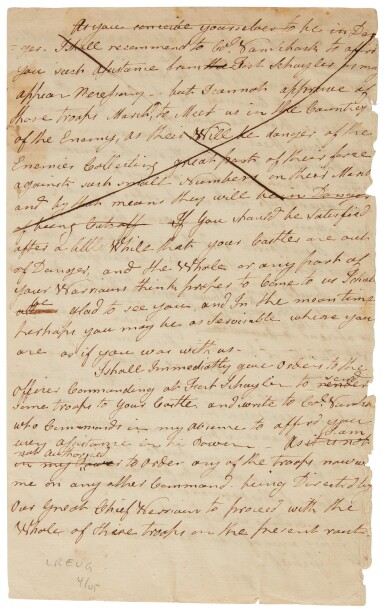 As you conceive yourselves to be in Dan
-ger. I shall recommend to Col. Vanschaick to afford
you such Assistance from the Fort Schuyler as may
appear Necessary – but I cannot approve of
those troops March, to Meet us in the Countries
of the Enemy, as their Will be danger of the
Enemies Collecting great part of their force
against such small Numbers on their March
and by that means they will be in Danger
of being Cutt off If you should be Satisfied
after a little While that your Castles are out
of Danger, and the Whole or any part of
your Warriours think proper to Come to us I shall
be Glad to see you, and In the mean time
perhaps you may be as Serviceable where you
are as if you was with us –
I shall Immediatly give Orders to the
officer Commanding at Fort Schuyler to send
some troops to Your Castle, and write to Col.
who Commands in my absence to afford you
every assistance in his Power As it is not
I am
not authorized
in my power to Order any of the troops now
me on any other Command being Directed by
Our Great Chief Warriour to proceed with the
Whole of those troops on the present route
LREUG
4/05